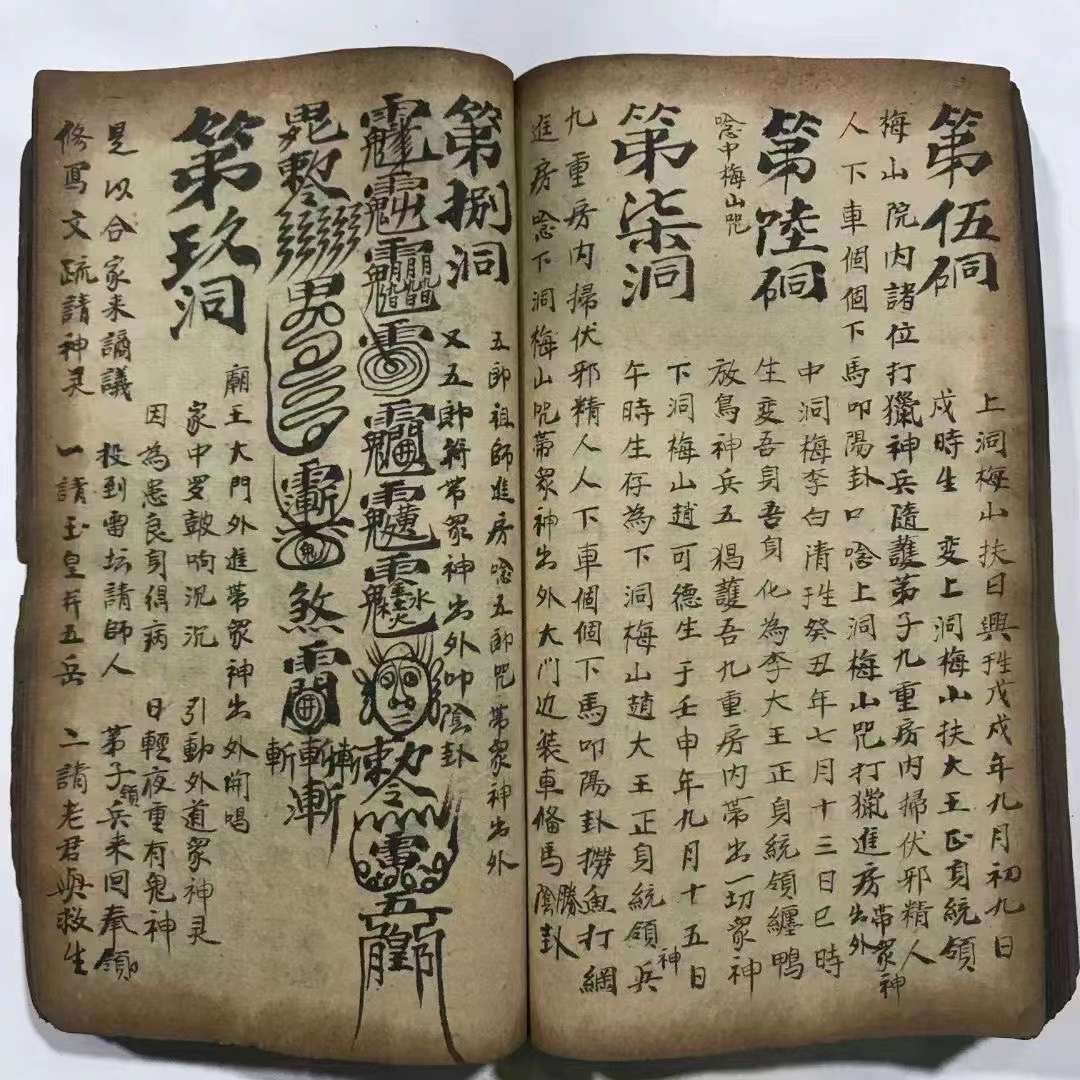 第伍硐
上洞梅山扶日興姓戊戌年九月初九日
戌時生 变上洞梅山扶大王正身統領
梅山院内諸位打獵神兵隨護弟子九重房内掃伏邪精人
人下車個個下馬叩陽卦口唸上洞梅山咒打獵進房帶眾神出外
第陸硐
中洞梅李白清姓癸丑年七月十三日巳時
生变吾身吾身化為李大王正身統領纏鴨
唸中梅山咒
放鳥神兵五猖護吾九重房内帶出一切眾神
第柒洞
下洞梅山趙可德生于壬申年九月十五日
午時生存為下洞梅山趙大王正身統領神兵
九重房内掃伏邪精人人下車個個下馬叩陽卦撈魚打網
進房唸下洞梅山咒帶眾神出外大门边装車俻馬勝陰卦
第捌洞
五郎祖師進房唸五郎咒帶眾神出外
又五郎符帶眾神出外叩陰卦
敕令
煞
斬斬斬
第玖洞
廟王大門外進帶眾神出外開唱
家中罗皷响沉沉 引動外道眾神灵
因為患良身得病 日輕夜重有鬼神
是以合家来謪議 投到雷坛請師人 弟子領兵来回奉領
修寫文疏請神灵 一請玉皇并五岳 二請老君與救生